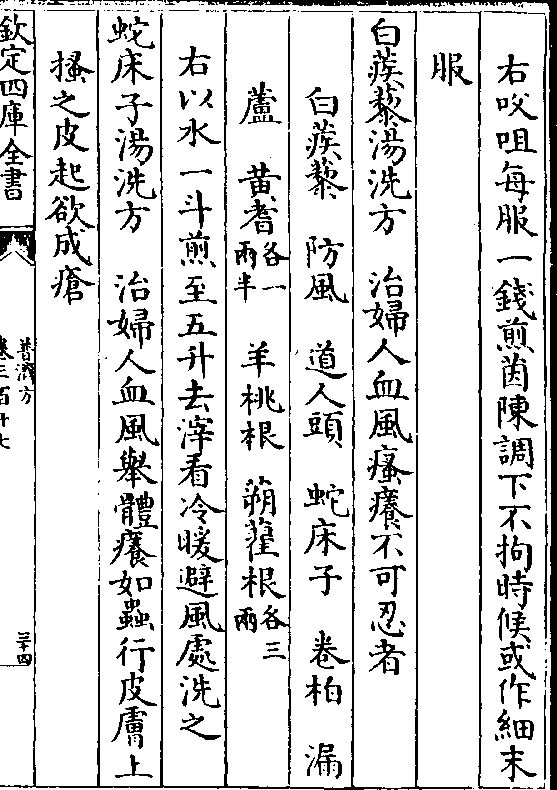 右㕮咀每服一錢煎茵陳調下不拘時候或作細末
服
白蒺藜湯洗方　治婦人血風瘙癢不可忍者
白蒺藜　防風　道人頭　蛇床子　卷柏　漏
蘆　黄耆各一兩半　羊桃根　蒴藋根各三兩
右以水一斗煎至五升去滓看冷暖避風處洗之
蛇床子湯洗方　治婦人血風舉體癢如蟲行皮膚上
搔之皮起欲成瘡
欽定四庫全書
普濟方
卷三百十七
三十四